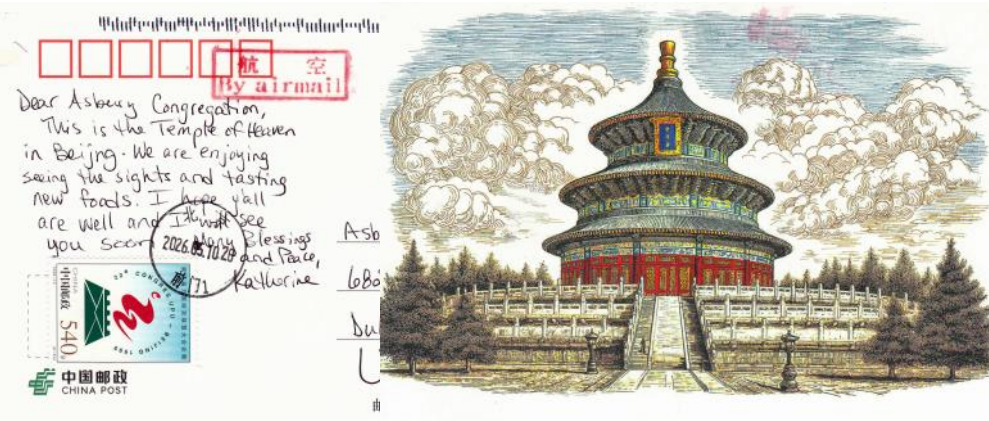 航 空
By airmail
Dear Asbury Congregation,
This is the Temple of Heaven
in Beijng. We are enjoying
seeing the sights and tasting
new foods. I hope y'all
are well and I will see
you soon. Many Blessings
and Peace,
Katherine
Asb
Du
中国邮政
CHINA
540
UPU - BEIJING 1999
中国邮政
CHINA POST